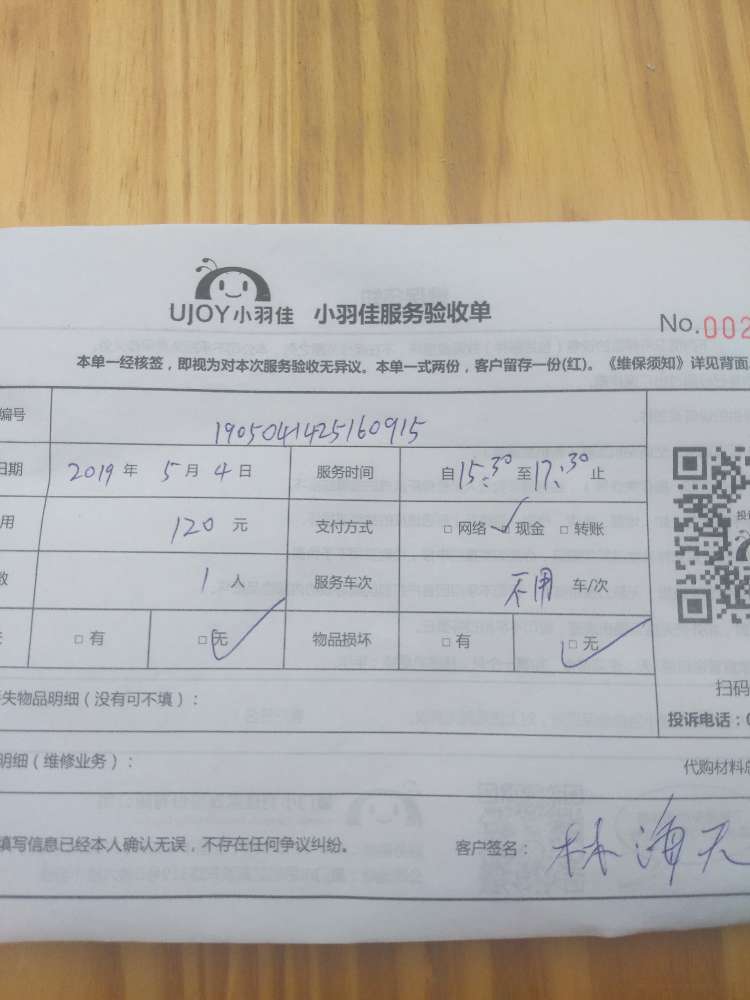 UJOY小羽佳 小羽佳服务验收单
No.002
本单一经核签，即视为对本次服务验收无异议。本单一式两份，客户留存一份(红)。《维保须知》详见背面
编号 1905041425160915
日期 2019年5月4日 服务时间 自15:30至17:30止
用 120元 支付方式 □网络 ✓□现金 □转账
数 1人 服务车次 不用 车/次
□有 □无✓ 物品损坏 □有 □无✓
扫码
失物品明细（没有可不填）：
投诉电话：0
明细（维修业务）：
代购材料总
填写信息已经本人确认无误，不存在任何争议纠纷。 客户签名：林海天